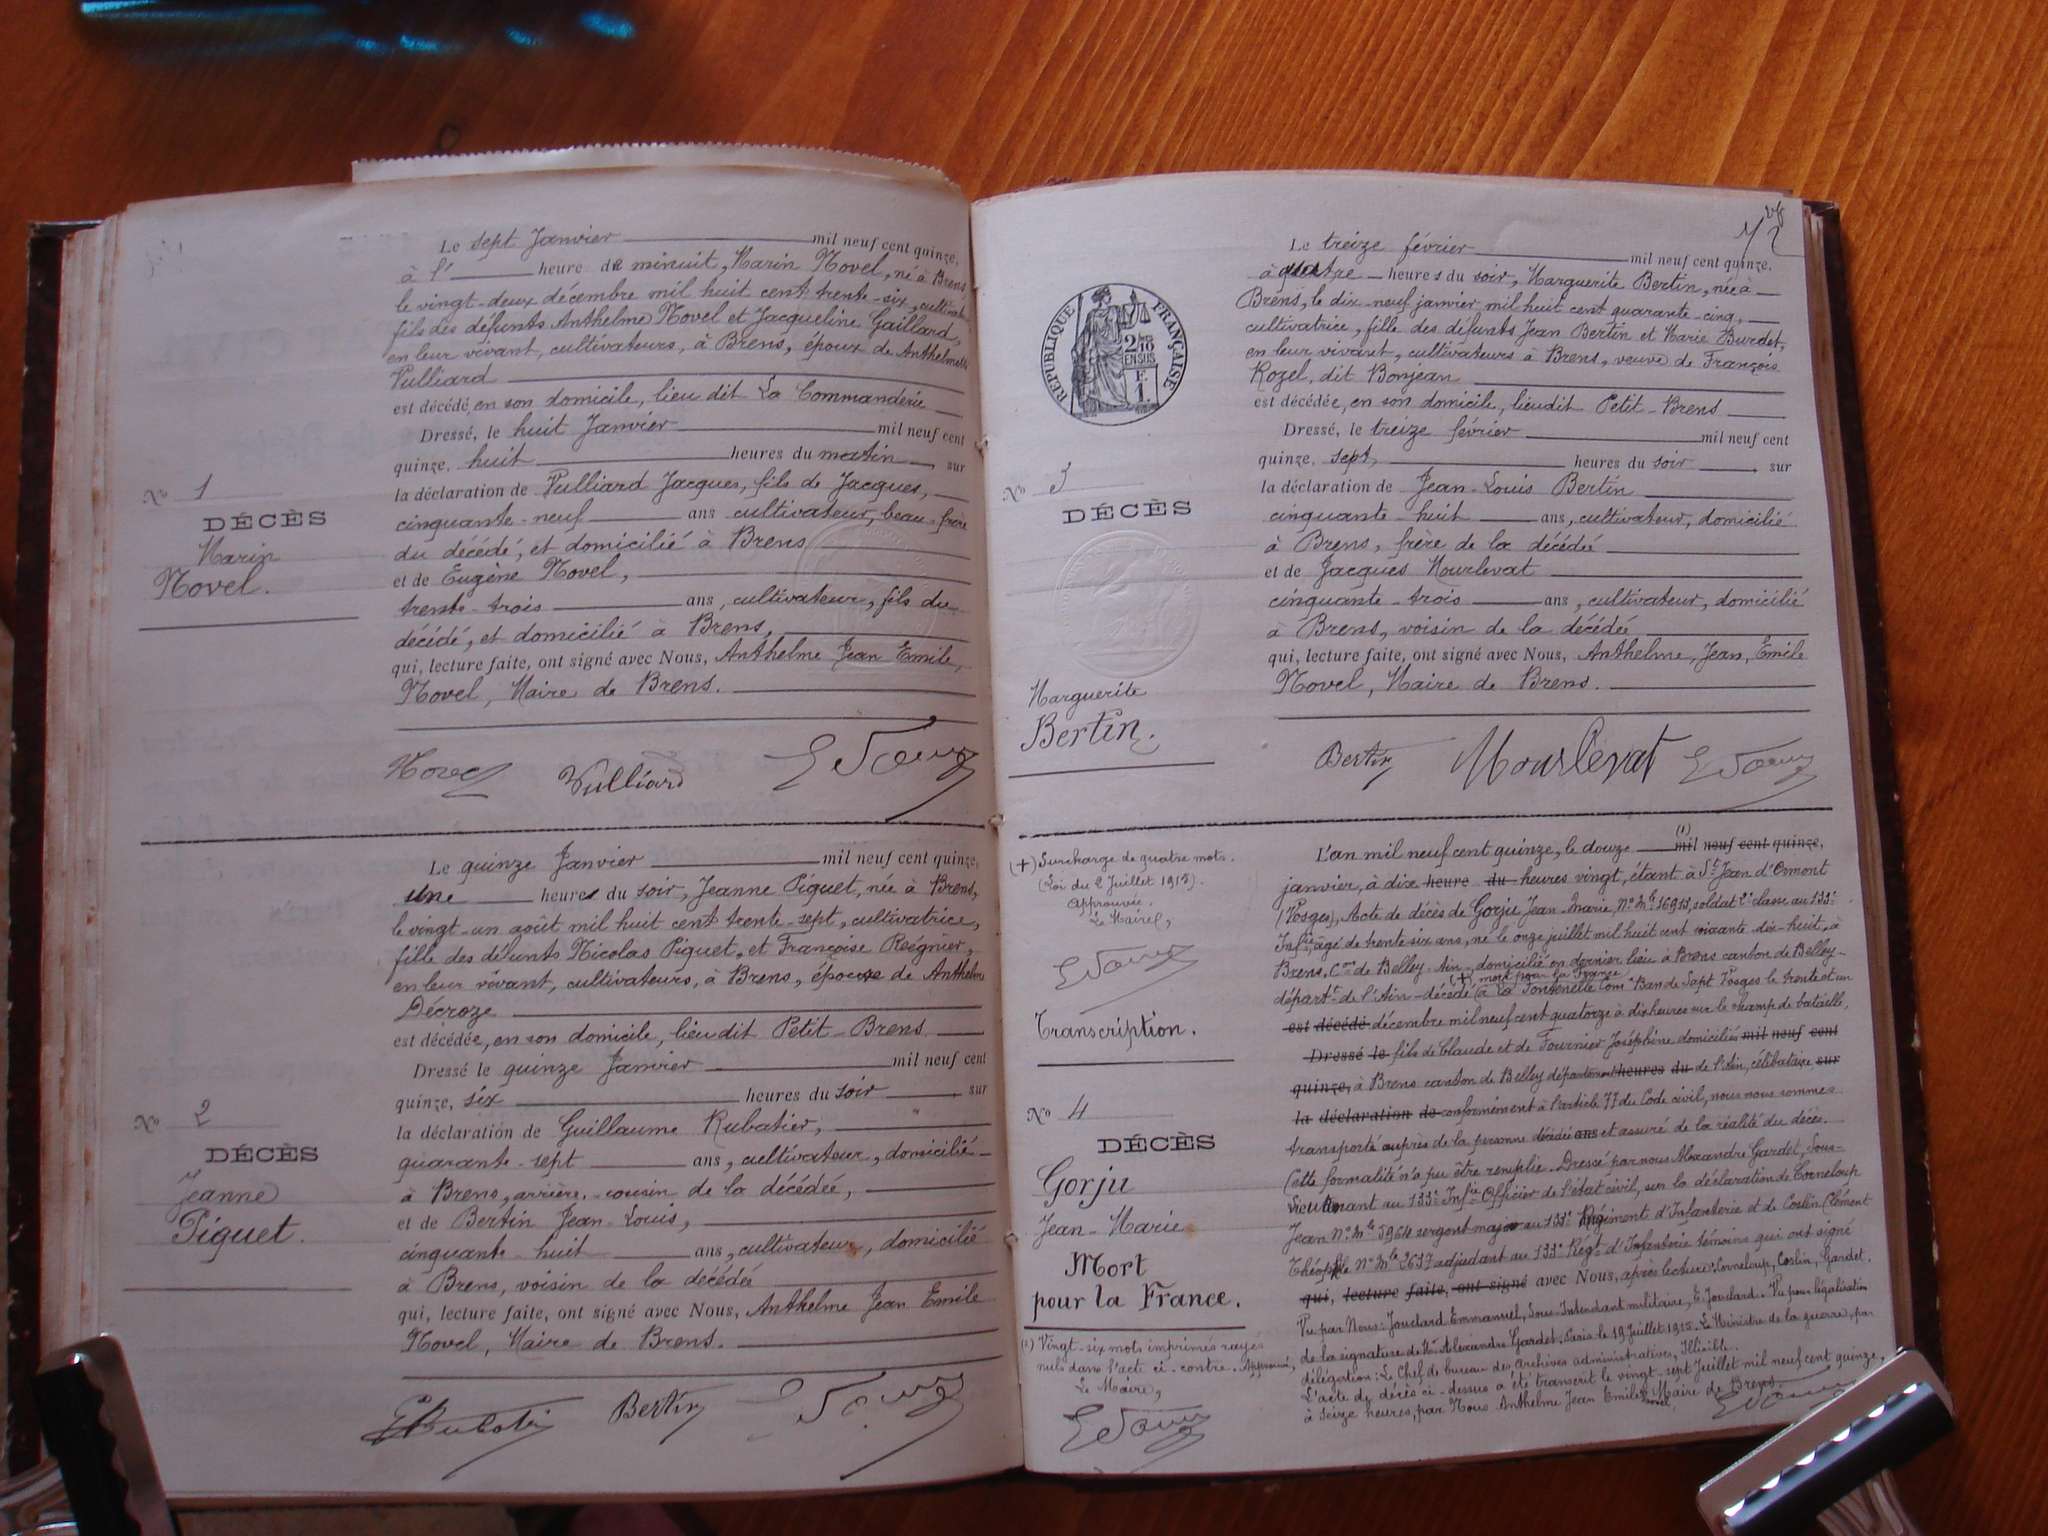 Le sept Janvier mil neuf cent quinze,
à l' heure de minuit, Marin Novel, né à Brens
le vingt-deux décembre mil huit cent trente-six, cultivateur
fils des défunts Anthelme Novel et Jacqueline Gaillard,
en leur vivant, cultivateurs, à Brens, époux de Anthelmette
Vulliard
est décédé, en son domicile, lieu dit La Commanderie
Dressé, le huit Janvier mil neuf cent
quinze, huit heures du matin, sur
la déclaration de Vulliard Jacques, fils de Jacques,
cinquante-neuf ans cultivateur, beau-frère
du décédé, et domicilié à Brens
et de Eugène Novel,
trente-trois ans, cultivateur, fils du
décédé, et domicilié à Brens,
qui, lecture faite, ont signé avec Nous, Anthelme Jean Emile
Novel, Maire de Brens.
No 1
DÉCÈS
Marin
Novel.
Novel Vulliard E Novel
Le quinze Janvier mil neuf cent quinze,
une heure du soir, Jeanne Piguet, née à Brens,
le vingt-un août mil huit cent trente-sept, cultivatrice,
fille des défunts Nicolas Piguet, et Françoise Reégnier,
en leur vivant, cultivateurs, à Brens, épouse de Anthelme
Décroze
est décédée, en son domicile, lieu dit Petit-Brens
Dressé le quinze Janvier mil neuf cent
quinze, six heures du soir, sur
la déclaration de Guillaume Rubatier,
quarante-sept ans, cultivateur, domicilié
à Brens, arrière-cousin de la décédée,
et de Bertin Jean-Louis,
cinquante-huit ans, cultivateur, domicilié
à Brens, voisin de la décédée
qui, lecture faite, ont signé avec Nous, Anthelme Jean Emile
Novel, Maire de Brens.
No 2
DÉCÈS
Jeanne
Piguet.
Bertin E Novel
RÉPUBLIQUE FRANÇAISE
2/10
EN SUS
F.
1.
Le treize février mil neuf cent quinze,
à quatre heures du soir, Marguerite Bertin, née à
Brens, le dix-neuf janvier mil huit cent quarante-cinq,
cultivatrice, fille des défunts Jean Bertin et Marie Burdet,
en leur vivant, cultivateurs à Brens, veuve de François
Rozel, dit Bonjean
est décédée, en son domicile, lieudit Petit-Brens
Dressé, le treize février mil neuf cent
quinze, sept, heures du soir, sur
la déclaration de Jean-Louis Bertin
cinquante-huit ans, cultivateur, domicilié
à Brens, frère de la décédée
et de Jacques Mourlevat
cinquante-trois ans, cultivateur, domicilié
à Brens, voisin de la décédée
qui, lecture faite, ont signé avec Nous, Anthelme, Jean, Emile
Novel, Maire de Brens.
No 3
DÉCÈS
Marguerite
Bertin.
Bertin Mourlevat E Novel
(+) Surcharge de quatre mots.
(Loi du 2 Juillet 1915).
Approuvée.
Le Maire,
E Novel
Transcription.
No 4
DÉCÈS
Gorju
Jean-Marie
Mort
pour la France.
(1) Vingt-six mots imprimés rayés
nuls dans l'acte ci-contre. Approuvé,
Le Maire,
E Novel
L'an mil neuf cent quinze, le douze (1) mil neuf cent quinze,
janvier, à dix heure du heures vingt, étant à St Jean d'Ormont
(Vosges), Acte de décès de Gorju Jean-Marie, No Mle 16913, soldat 2e classe au 133e
Infie, âgé de trente-six ans, né le onze juillet mil huit cent soixante-dix-huit, à
Brens, Con de Belley-Ain-domicilié en dernier lieu à Brens canton de Belley-
(+) mort pour la France
départt de l'Ain-décédé à La Fontenelle Com Ban de Sapt Vosges le trente et un
est décédé décembre mil neuf cent quatorze à dix heures sur le champ de bataille,
Dressé le fils de Claude et de Fournier Joséphine domiciliés mil neuf cent
quinze, à Brens canton de Belley département heures du de l'Ain, célibataire sur
la déclaration de conformément à l'article 77 du Code civil, nous nous sommes
transporté auprès de la personne décédée ans et assuré de la réalité du décès.
Cette formalité n'a pu être remplie. Dressé par nous Alexandre Gardet, Sous-
Lieutenant au 133e Infie Officier de l'état civil, sur la déclaration de Corneloup
Jean No Mle 5964 sergent major au 133e Régiment d'Infanterie et de Coslin Clément
Théophile No Mle 2637 adjudant au 133e Régt d'Infanterie témoins qui ont signé
qui, lecture faite, ont signé avec Nous, après lecture. Corneloup, Coslin, Gardet.
Vu par Nous: Jouclard Emmanuel, Sous-Intendant militaire, E. Jouclard. Vu pour légalisation
de la signature de Mr Alexandre Gardet. Paris le 19 Juillet 1915. Le Ministre de la guerre, par
délégation: Le Chef de bureau des Archives administratives, Illisible.
L'acte de décès ci-dessus a été transcrit le vingt-sept Juillet mil neuf cent quinze,
à seize heures, par Nous Anthelme Jean Emile Novel, Maire de Brens.
E Novel